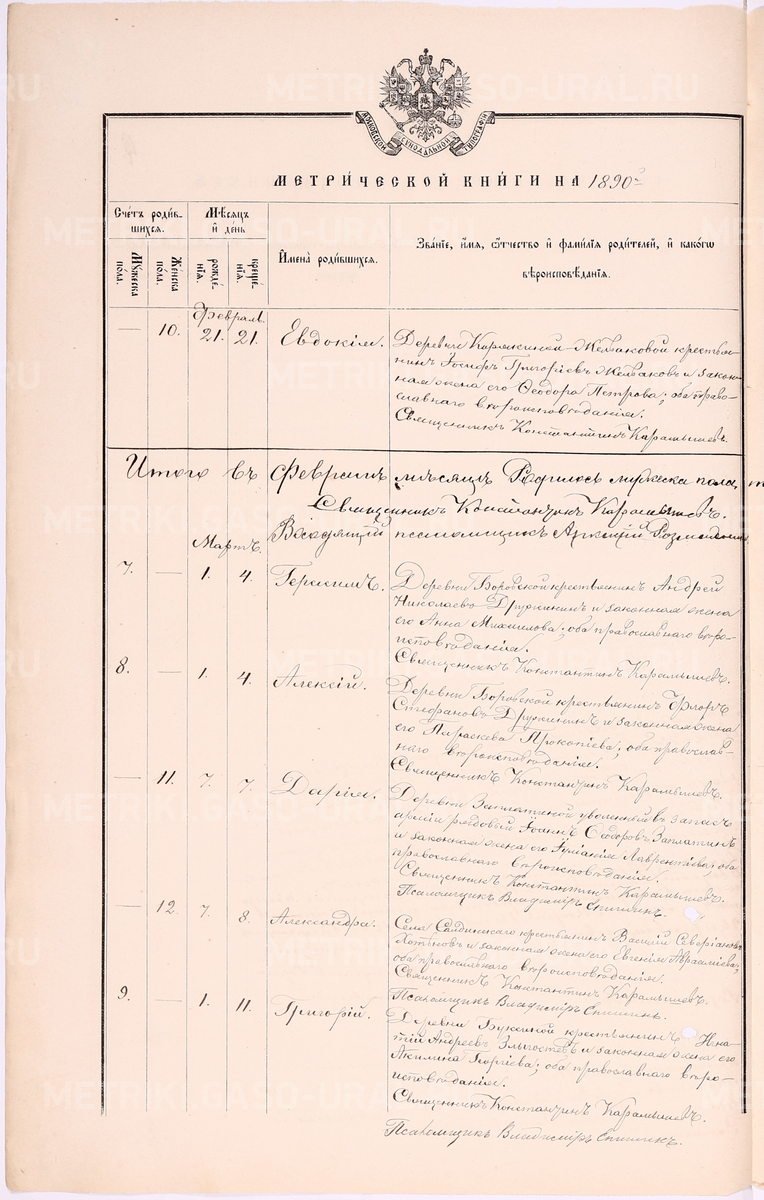 ДУХОВСКОЙ СУНОДАЛЬНОЙ ТИПОГРАФІИ
МЕТРИЧЕСКОЙ КНИГИ НА 1890 г.
Счетъ родив-
шихся.
Мѣсяцъ
и день
Мужеска
пола.
Женска
пола.
рожде-
нія.
креще-
нія.
Имена родившихся.
Званіе, имя, отчество и фамилія родителей, и какого
вѣроисповѣданія.
Февраль
— 10. 21. 21. Евдокія.
Деревни Карякиной-Желваковой крестья-
нинъ Іосифъ Григоріевъ Желваковъ и закон-
ная жена его Ѳеодора Петрова; оба право-
славнаго вѣроисповѣданія.
Священникъ Константинъ Карамышевъ.
Итого въ Февралѣ мѣсяцѣ Родилось мужеска пола,
Священникъ Константинъ Карамышевъ.
Мартъ.
псаломщикъ
7. — 1. 4. Герасимъ.
Деревни Боровской крестьянинъ Андрей
Николаевъ Дружининъ и законная жена
его Анна Михаилова; оба православнаго вѣро-
исповѣданія.
Священникъ Константинъ Карамышевъ.
8. — 1. 4. Алексій.
Деревни Боровской крестьянинъ Флоръ
Стефановъ Дружининъ и законная жена
его Параскева Прокопіева; оба православ-
наго вѣроисповѣданія.
Священникъ Константинъ Карамышевъ.
— 11. 7. 7. Дарія.
Деревни Заплатиной уволенный въ запасъ
арміи рядовой Іоаннъ Ѳедоровъ Заплатинъ
и законная жена его Іуліанія Лаврентіева; оба
православнаго вѣроисповѣданія.
Священникъ Константинъ Карамышевъ.
Псаломщикъ Владиміръ Епишинъ.
— 12. 7. 8. Александра.
Села Салдинскаго крестьянинъ Василій Северіановъ
Хотьковъ и законная жена его Евгенія Аврааміева;
оба православнаго вѣроисповѣданія.
Священникъ Константинъ Карамышевъ.
Псаломщикъ Владиміръ Епишинъ.
9. — 1. 11. Григорій.
Деревни Букиной крестьянинъ Игна-
тій Андреевъ Злыгостевъ и законная жена его
Акилина Георгіева; оба православнаго вѣро-
исповѣданія.
Священникъ Константинъ Карамышевъ.
Псаломщикъ Владиміръ Епишинъ.